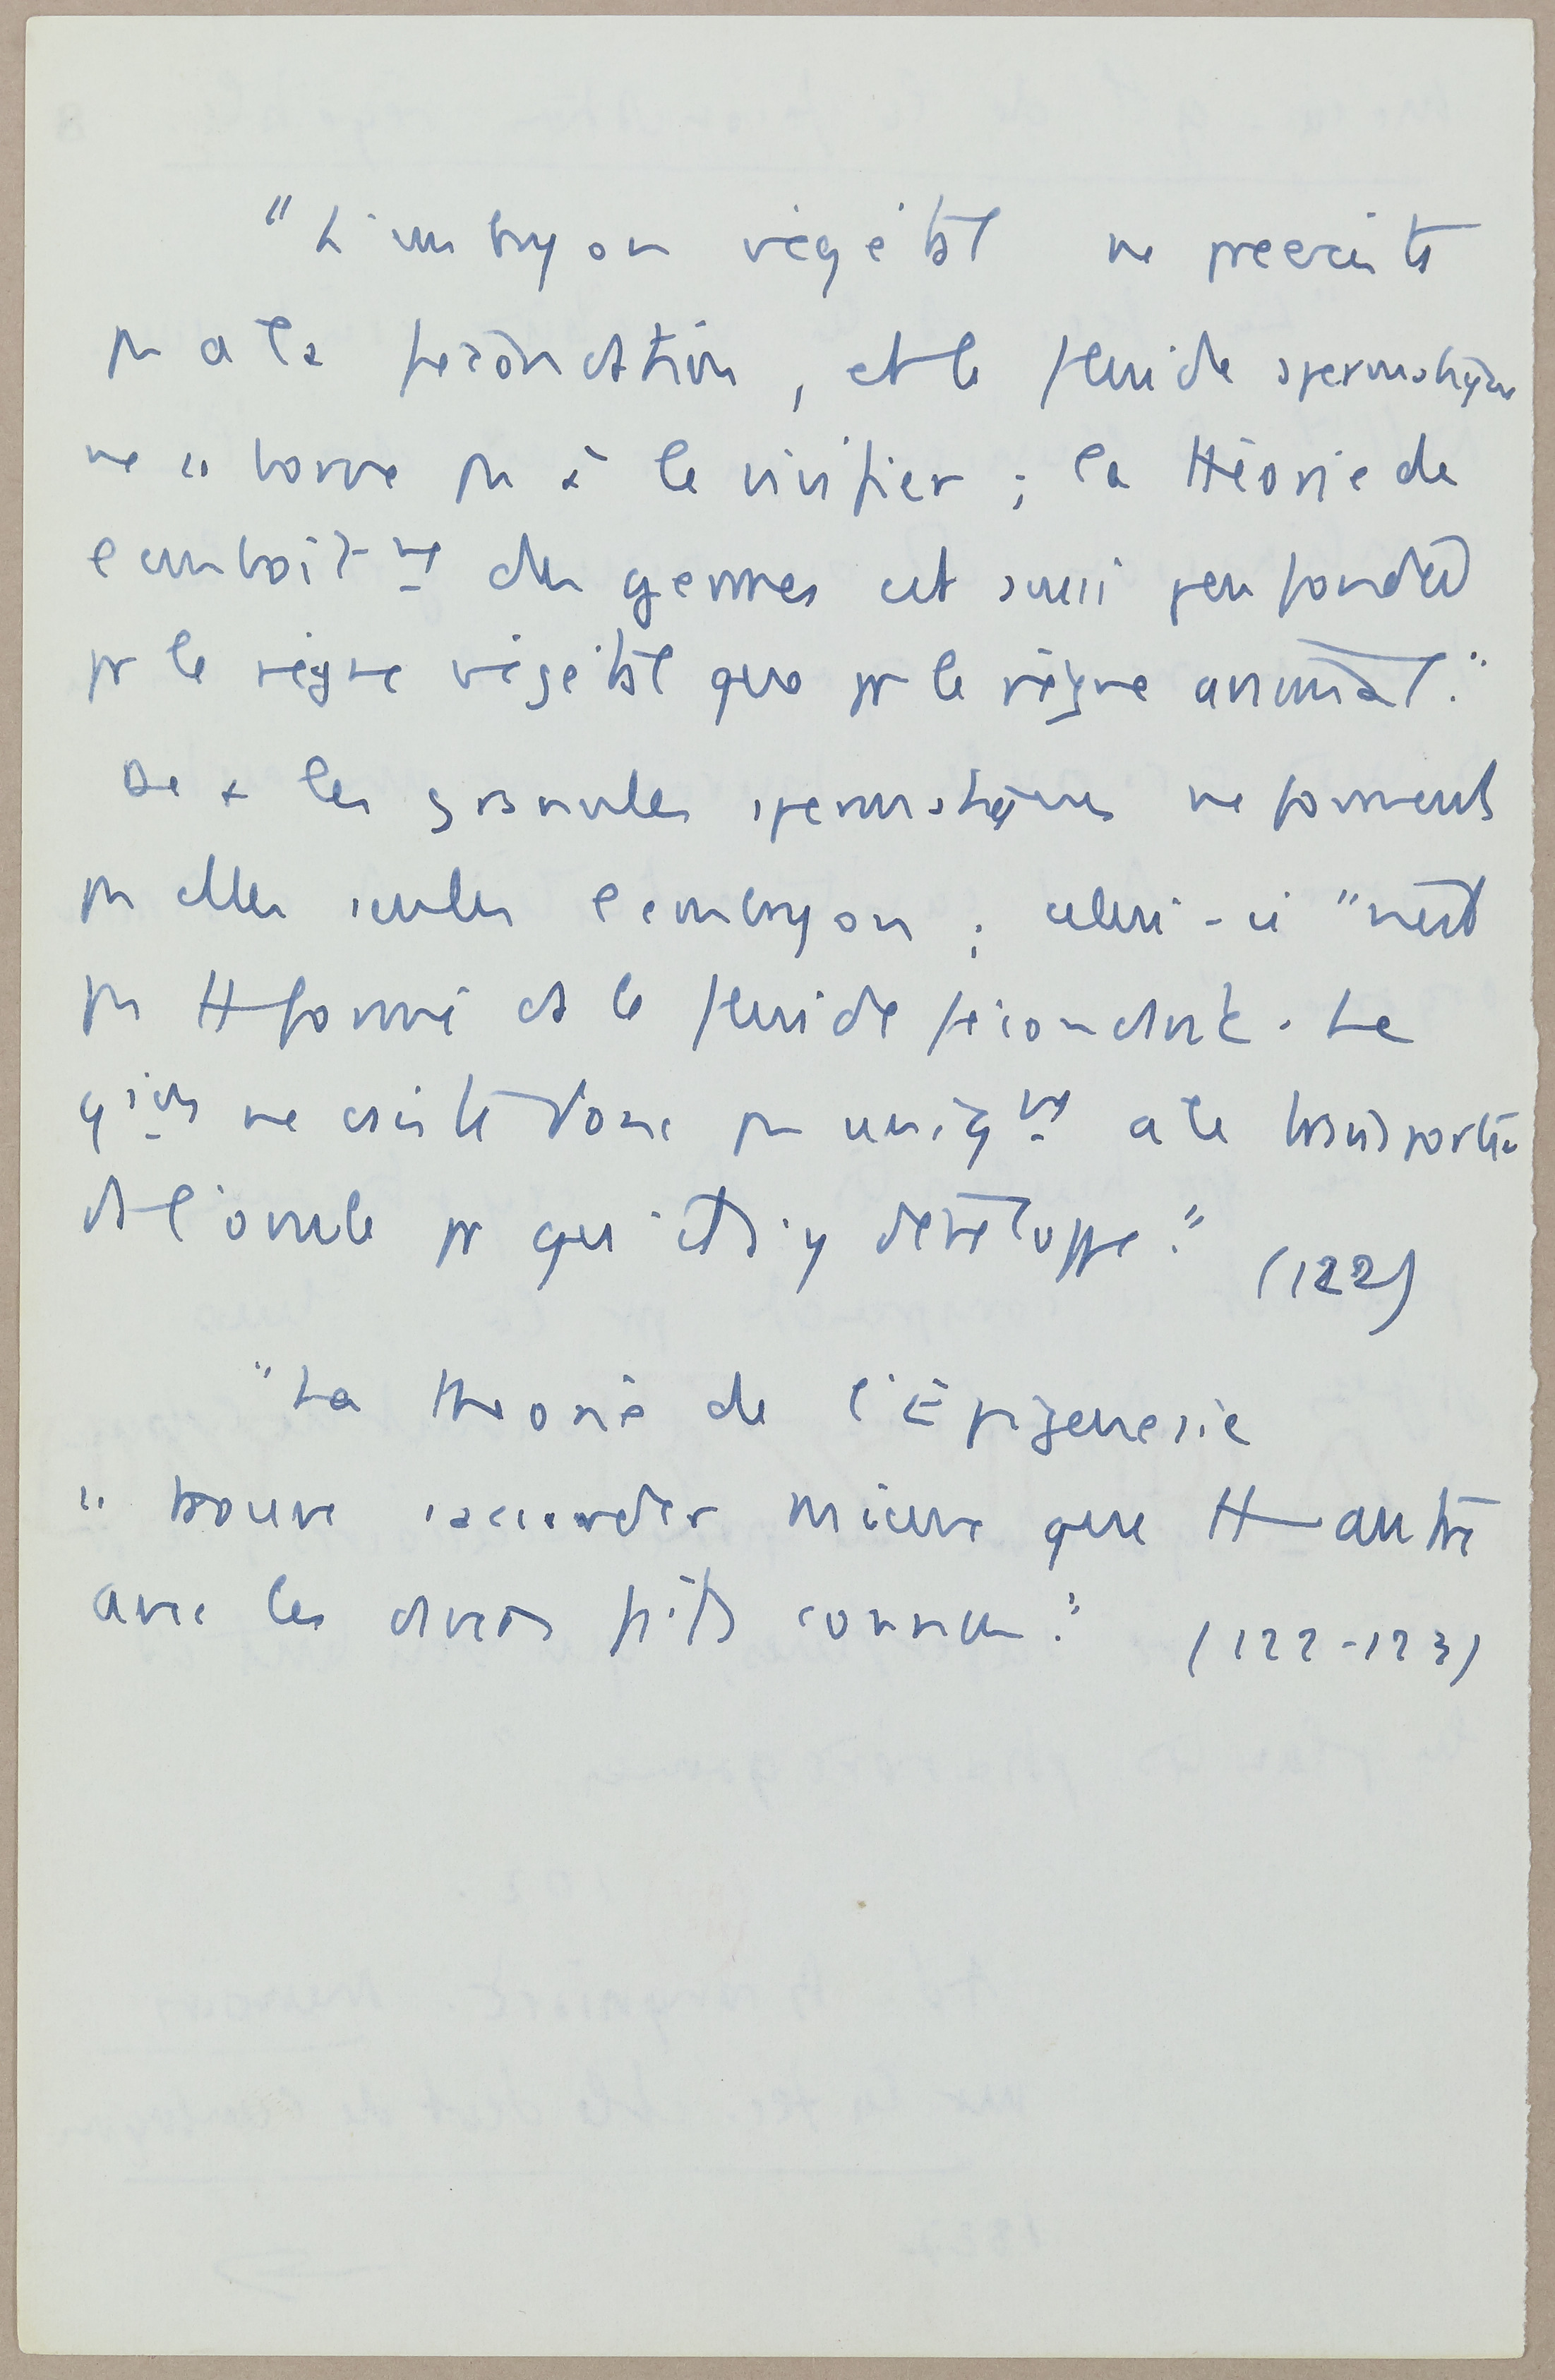 "L'embryon végétal ne préexiste
pas à la fécondation, et le fluide spermatique
ne se borne pas à le vivifier ; la théorie de
l'emboît-mt des germes est aussi peu fondée
pr le règne végétal que pr le règne animal."
De + les granules spermatiques ne forment
pas elles seules l'embryon ; celui-ci "n'est
pas tt formé ds le fluide fécondant. Le
ne consiste donc pas uniqmt à le transporter
ds l'ovule pr qu'il s'y développe." (122)
"La théorie de l'Épigenesie
se trouve s'accorder mieux que tt autre
avec les divers faits connus." (122-123)